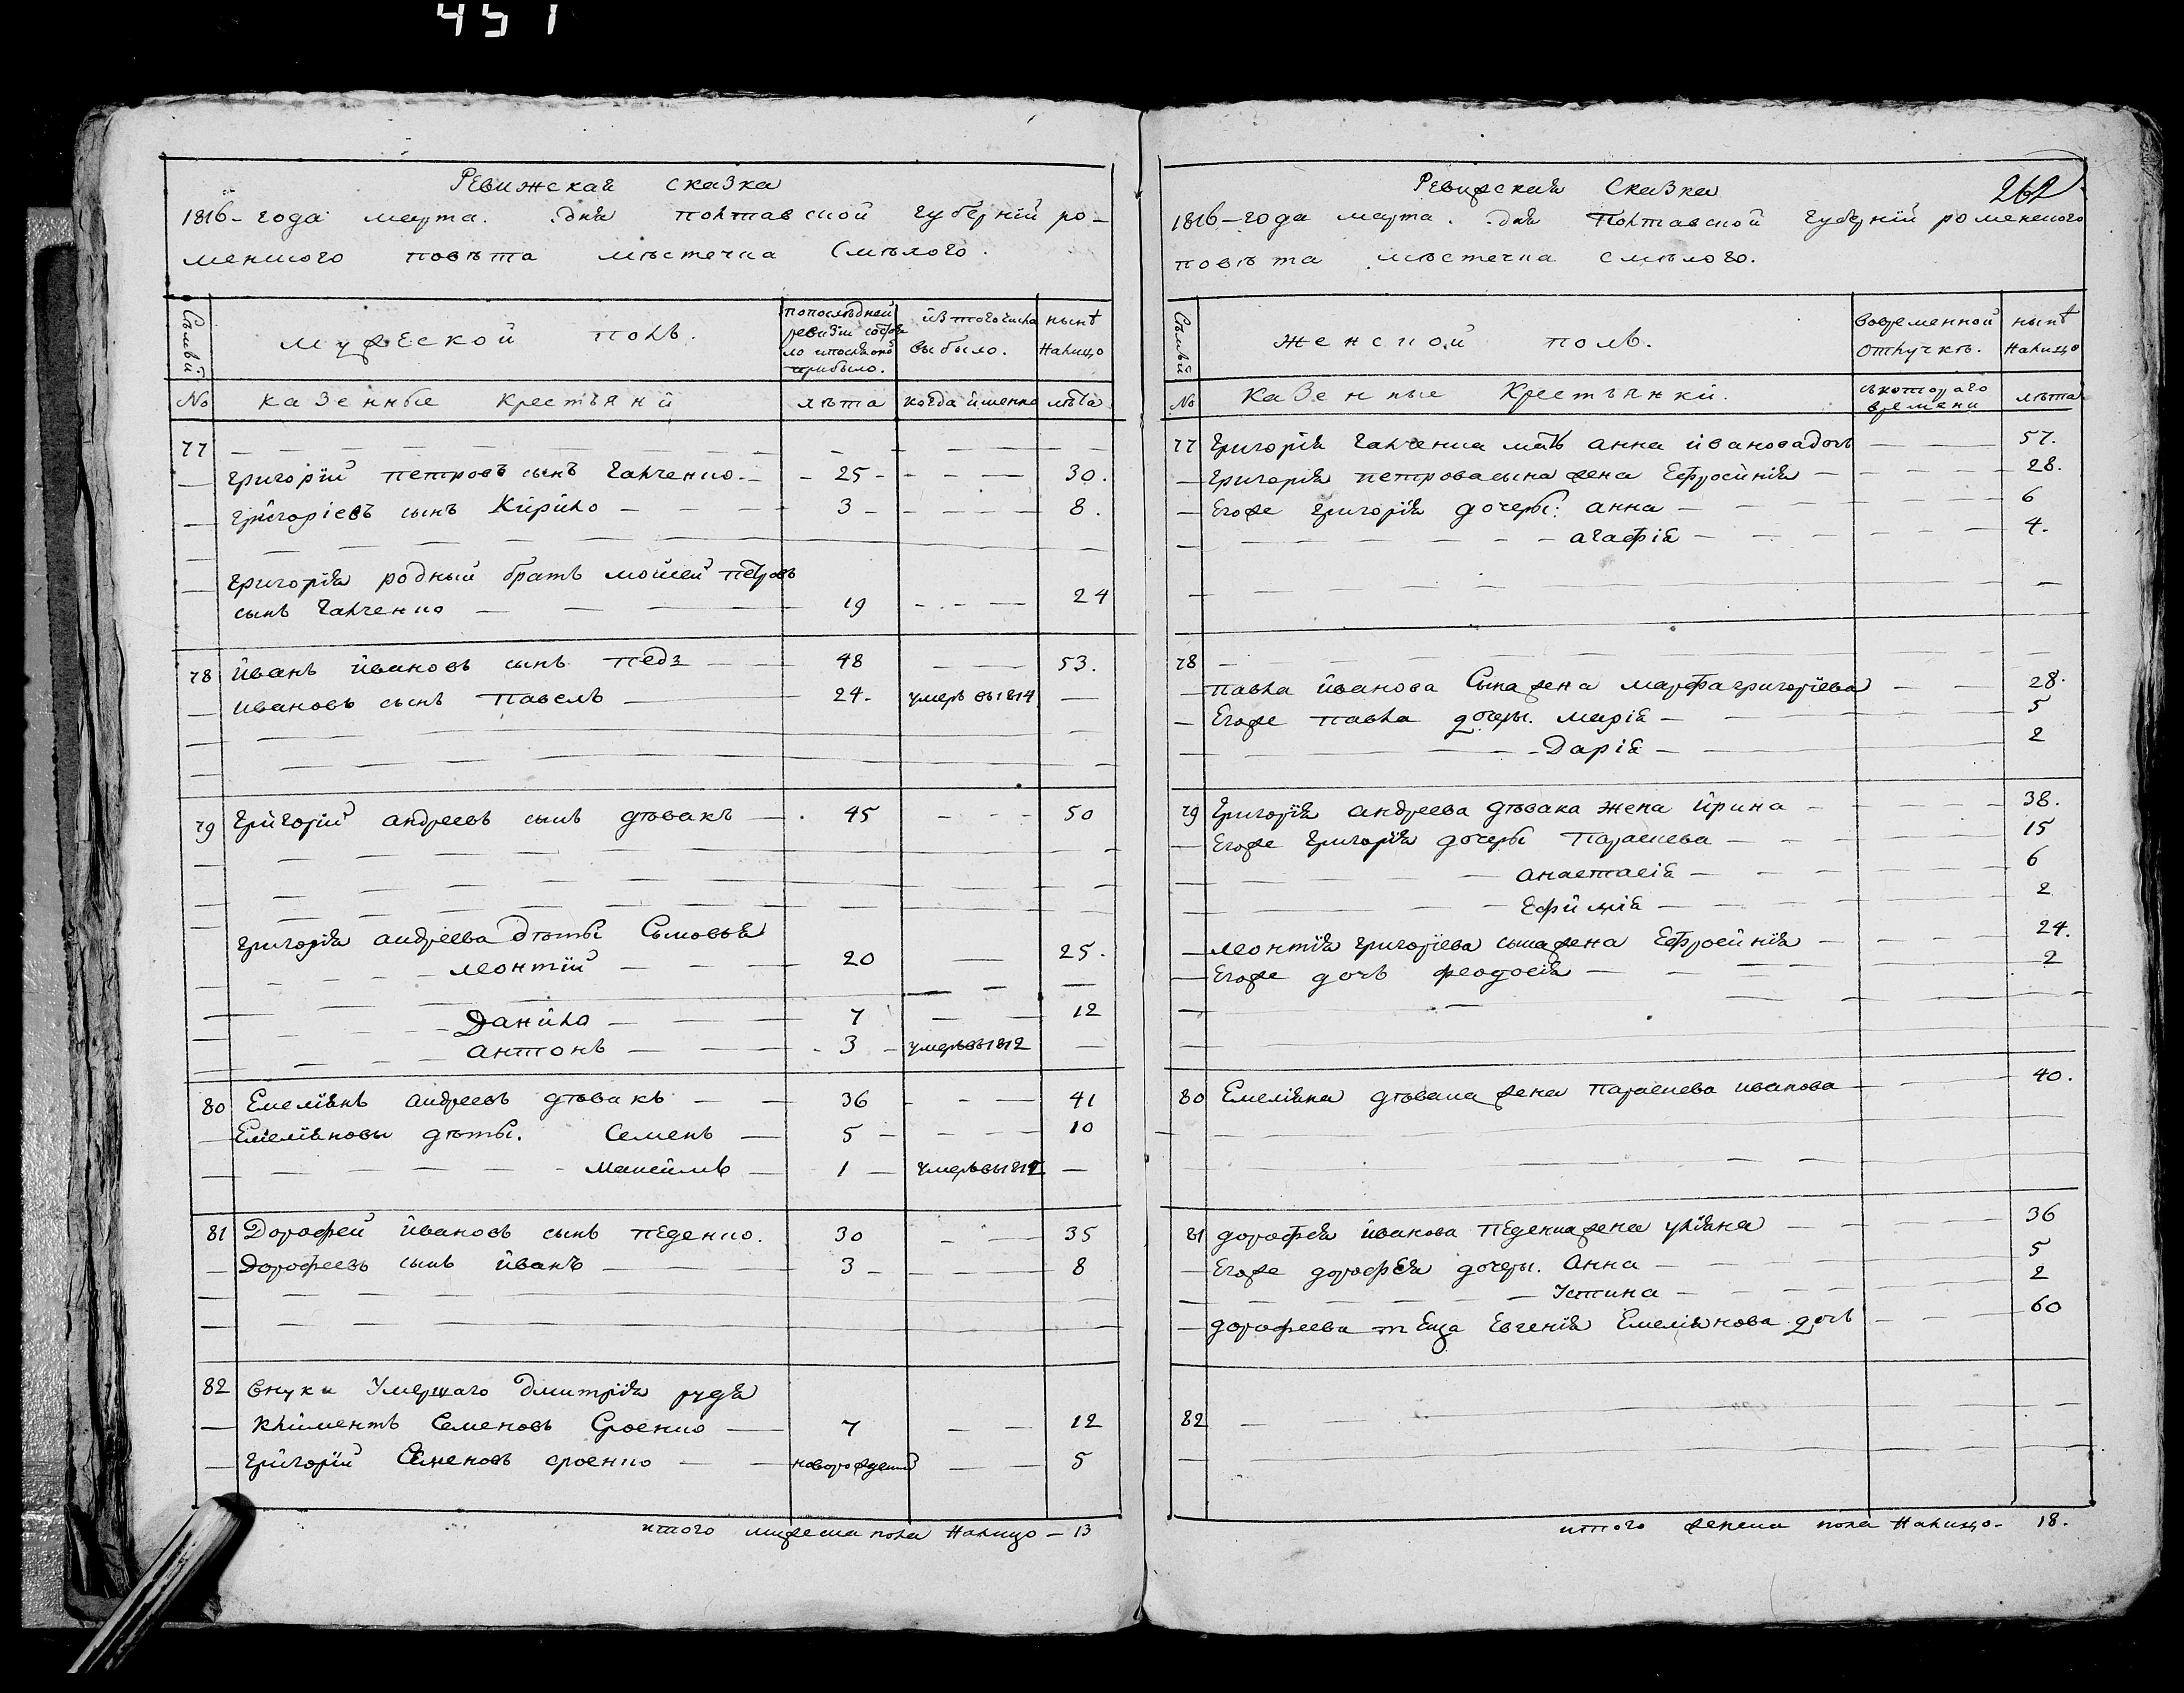 451
Ревижская сказка
1816-года марта. дня полтавской губернїи ро-
менского повѣта мѣстечка Смѣлого.
Сѣмьи
мужеской полъ.
попослѣдней ревизїи состояло ипослѣ оной прибыло.
изтогочисла выбыло.
нынѣ Налицо
No казенные крестьяни лѣта когда именно лѣта
77
Григорїй петровъ сынъ Галченко. 25 30.
Григорїевъ сынъ Кирило 3 8.
Григорїя родный братъ мойсей петровъ
сынъ Галченко 19 24
78 иванъ ивановъ сынъ педь 48 53.
ивановъ сынъ павелъ 24 умеръ въ1814
79 Григорїй андреевъ сынъ дѣвакъ 45 50
григорїя андреева дѣты Сыновья
леонтїй 20 25.
Данило 7 12
антонъ 3 умеръвъ1812
80 Емелїянъ андреевъ дѣвакъ 36 41
Емелїяновы дѣты. Семенъ 5 10
Максимъ 1 умеръвъ1812
81 Дорофей ивановъ сынъ педенко. 30 35
Дорофеевъ сынъ иванъ 3 8
82 внуки Умершаго дмитрїя рудя
климентъ Семеновъ 7 12
григорїй Семеновъ новорожденный 5
итого мужеска пола Налицо - 13
262
Ревижская Сказка
1816-года марта. дня Полтавской губернїи роменского
повѣта мѣстечка смѣлого.
Сѣмьи
женской полъ.
вовременной отлучкѣ.
нынѣ Налицо
No казенные Крестьянки. съкотораго времени лѣта
77 Григорїя галченка мать анна ивановадочь 57.
Григорїя петровасына жена Ефросинїя 28.
Егоже григорїя дочеры: анна 6
агафїя 4.
78
павла иванова Сына жена марфагригорїева 28.
Егоже павла дочеры. марїя 5
Дарїя 2
79 Григорїя андреева дѣвака жена ирина 38.
Егоже григорїя дочеры параскева 15
анастасїя 6
Ефимїя 2
леонтїя григорїева сынажена Ефросинїя 24.
Егоже дочь феодосїя 2
80 Емелїяна дѣвака жена параскева иванова 40.
81 дорофѣя иванова педенкажена улїяна 36
Егоже дорофѣя дочеры. Анна 5
Устина 2
дорофеева теща Евгенїя Емелїянова дочь 60
82
итого женска пола Налицо- 18.